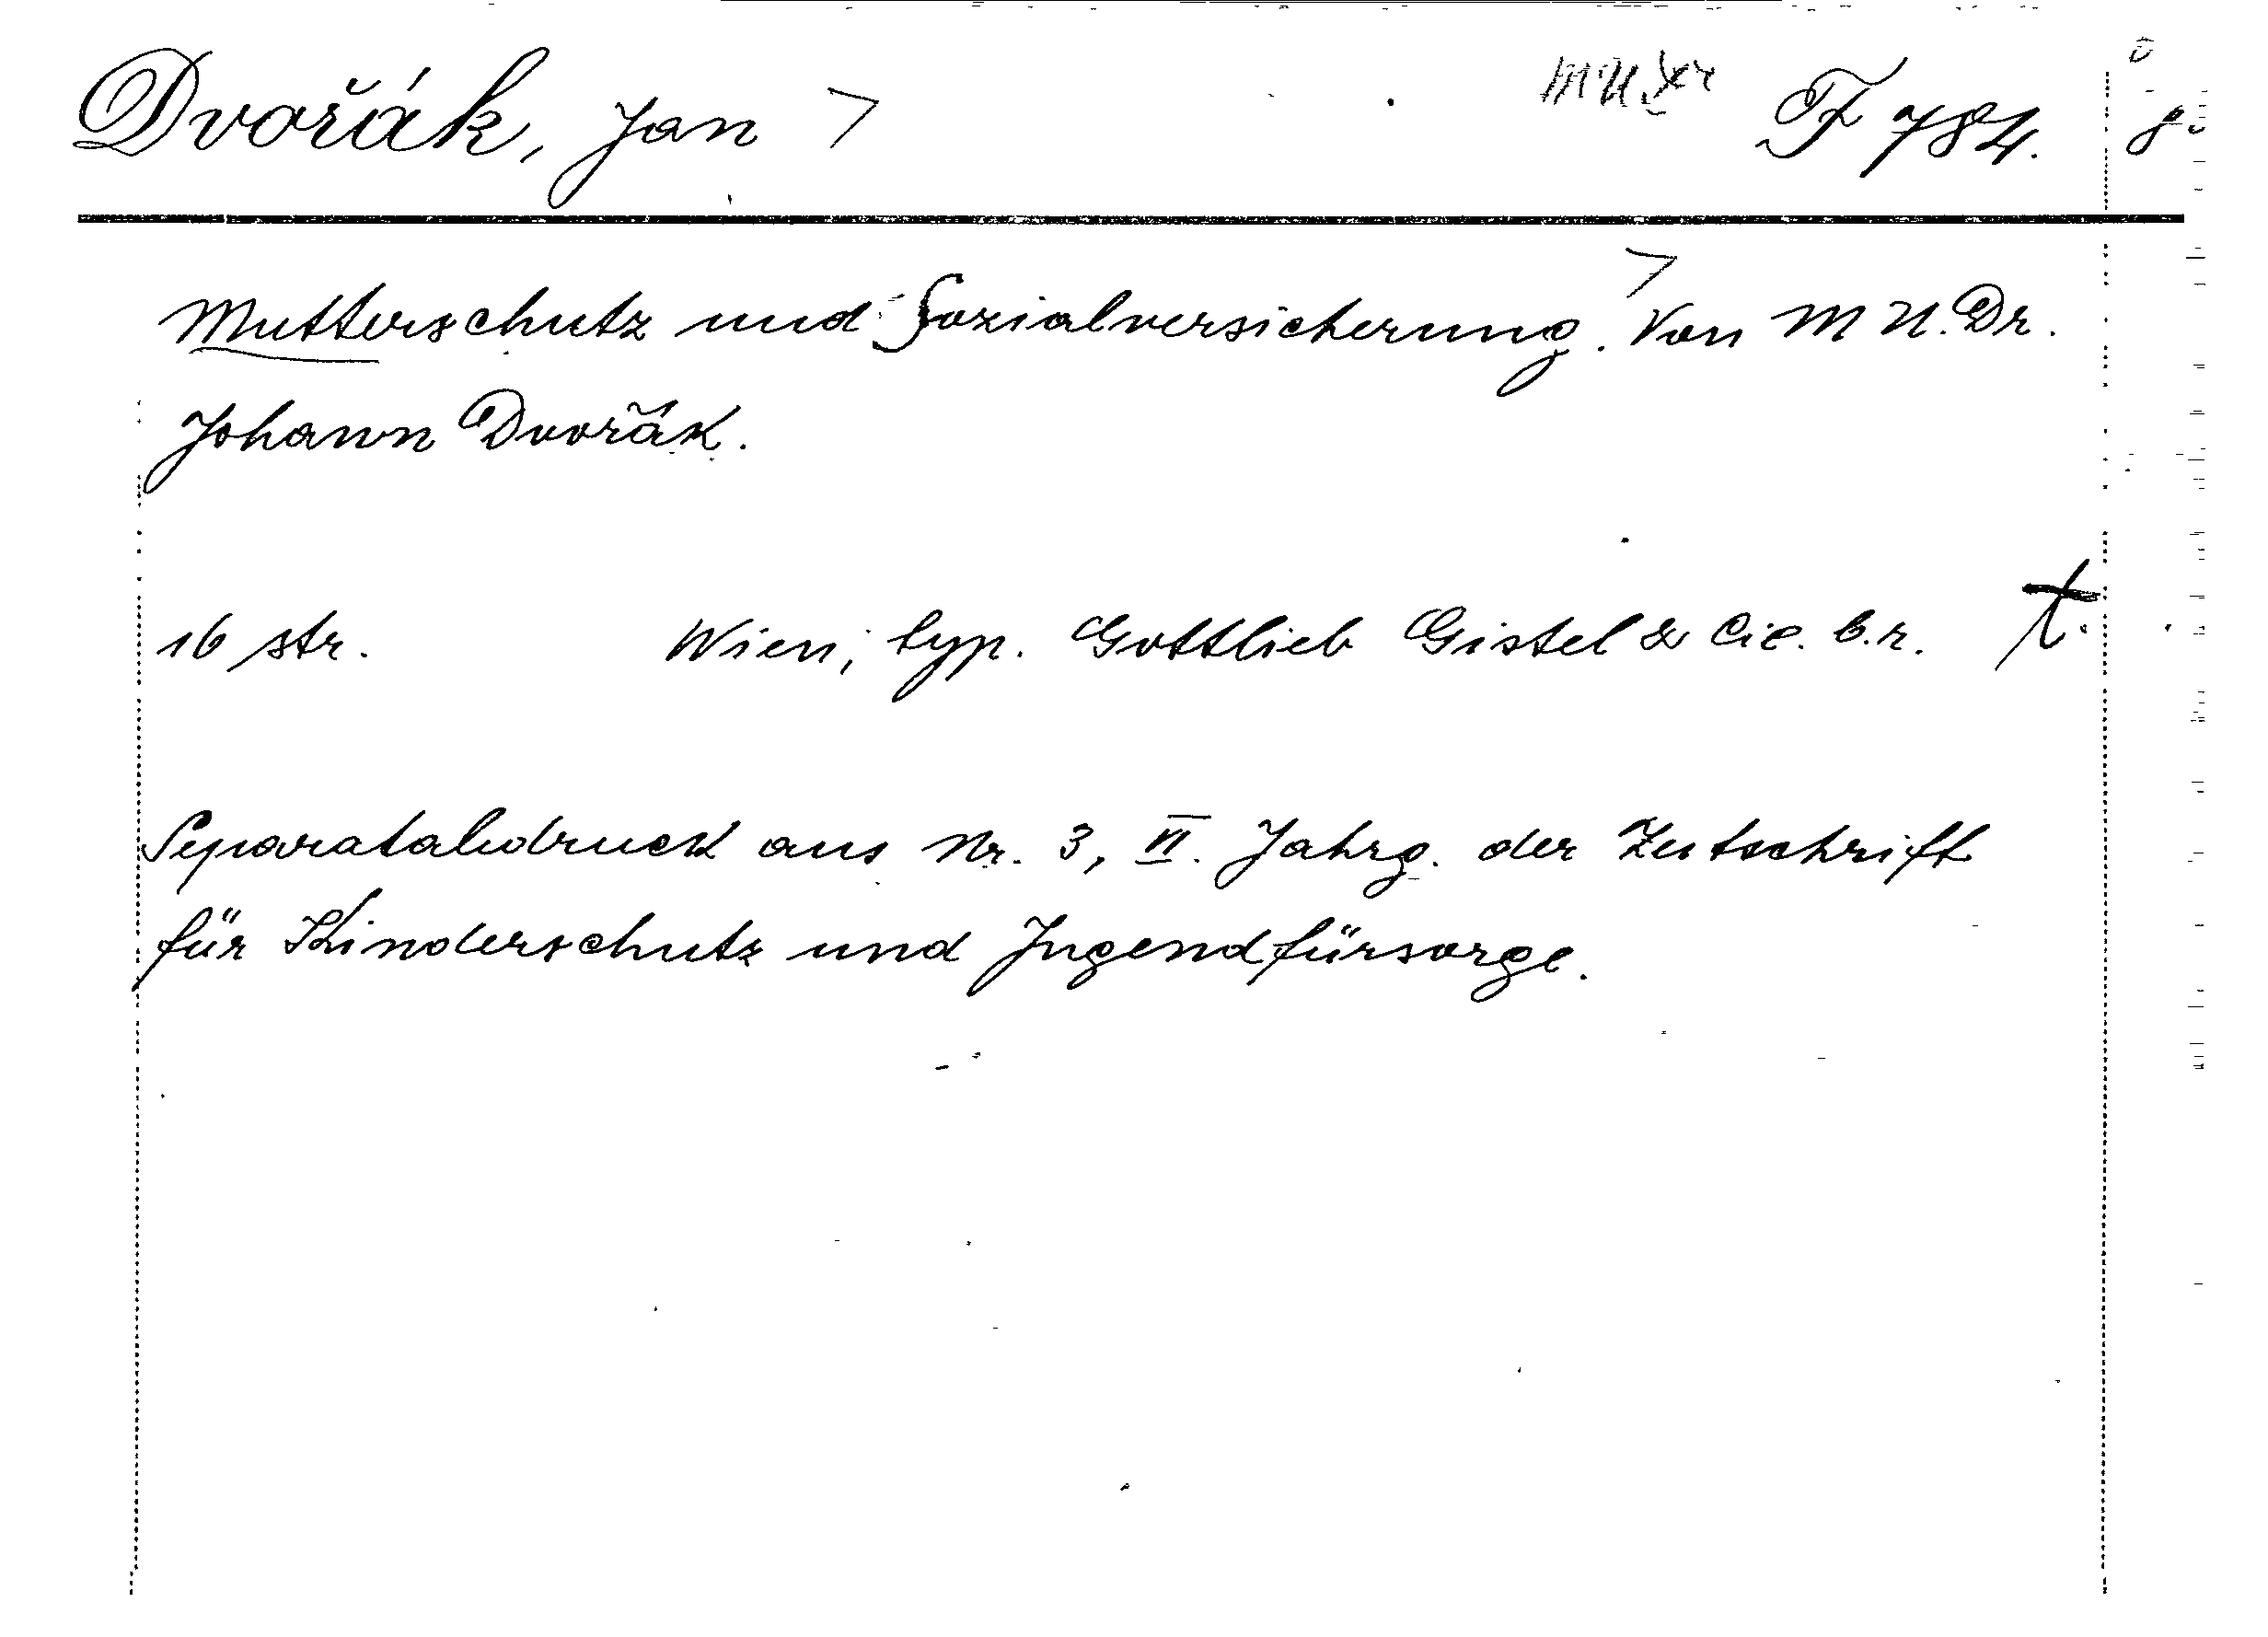 Dvořák, Jan F 784.
Mutterschutz und Sozialversicherung. Von M U. Dr.
Johann Dvořák.
16 str. Wien, typ. Gottlieb Gistel & Cie. b.r. t.
Separatabdruck aus Nr. 3, VI. Jahrg. der Zeitschrift
für Kinderschutz und Jugendfürsorge.